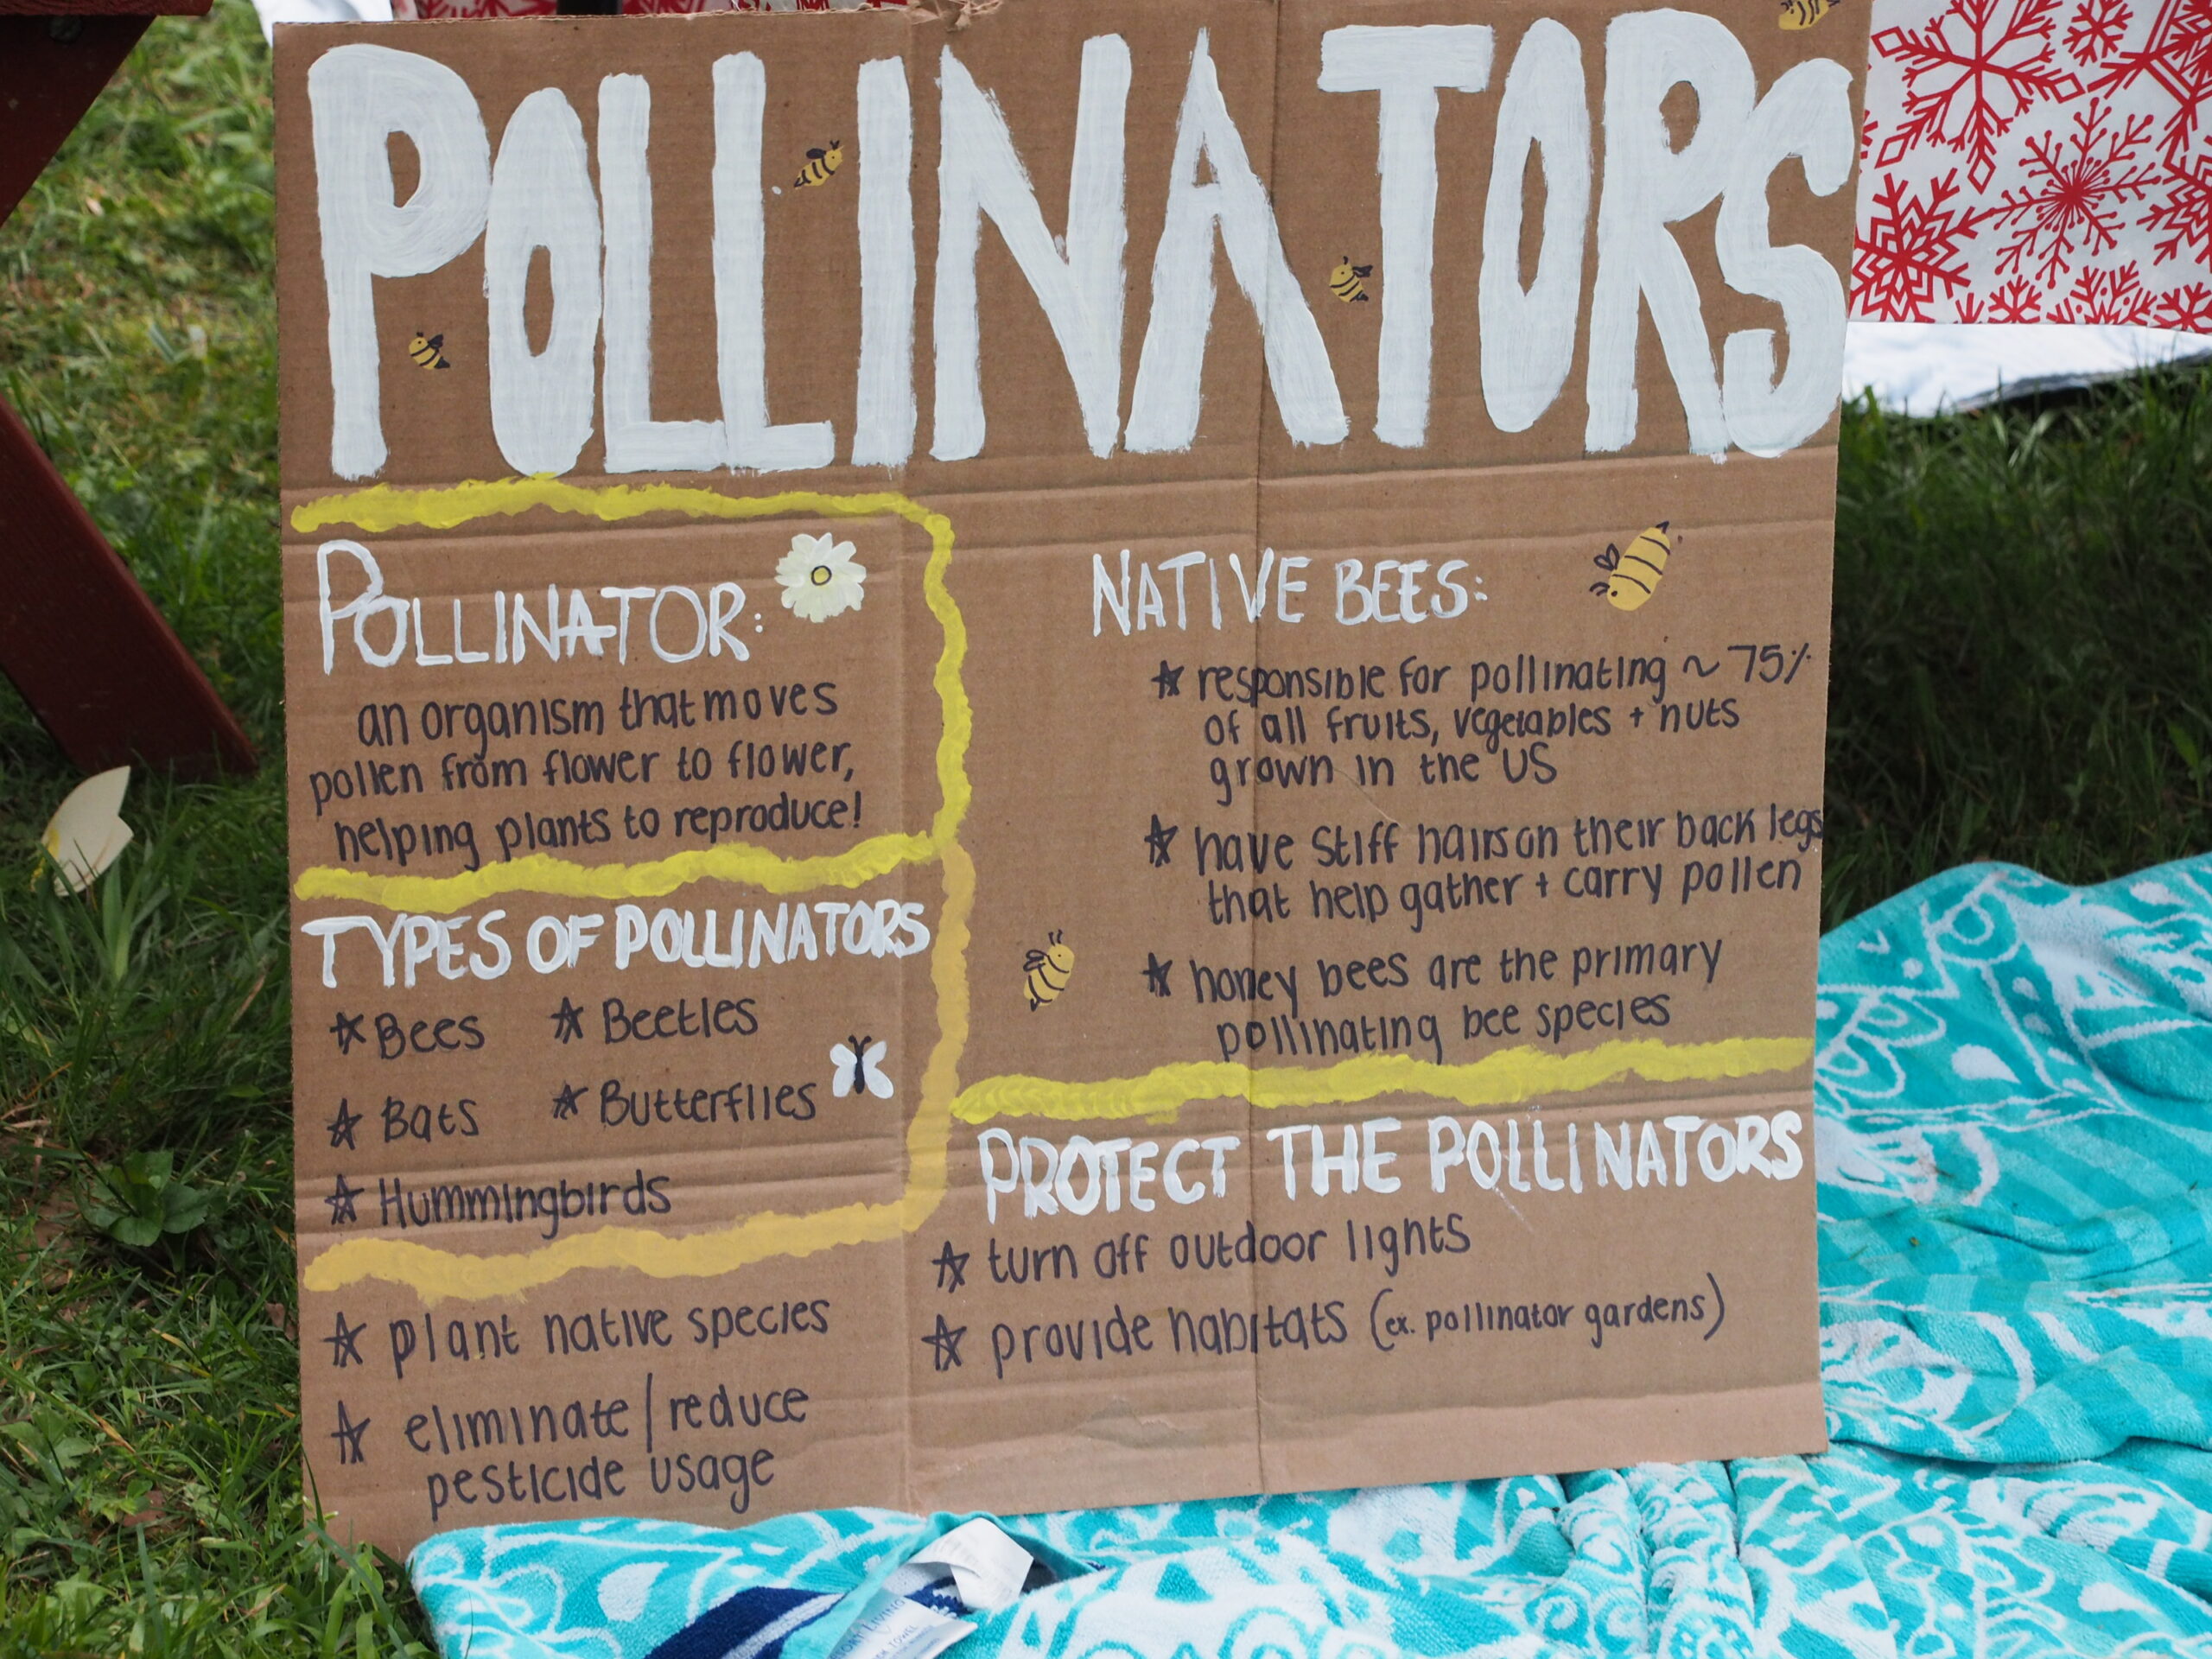 POLLINATORS
POLLINATOR:
an organism that moves
pollen from flower to flower,
helping plants to reproduce!
TYPES OF POLLINATORS
Bees
Beetles
Bats
Butterflies
Hummingbirds
NATIVE BEES:
responsible for pollinating ~ 75%
of all fruits, vegetables + nuts
grown in the US
have stiff hairs on their back legs
that help gather + carry pollen
honey bees are the primary
pollinating bee species
PROTECT THE POLLINATORS
turn off outdoor lights
provide habitats (ex. pollinator gardens)
plant native species
eliminate/reduce
pesticide usage